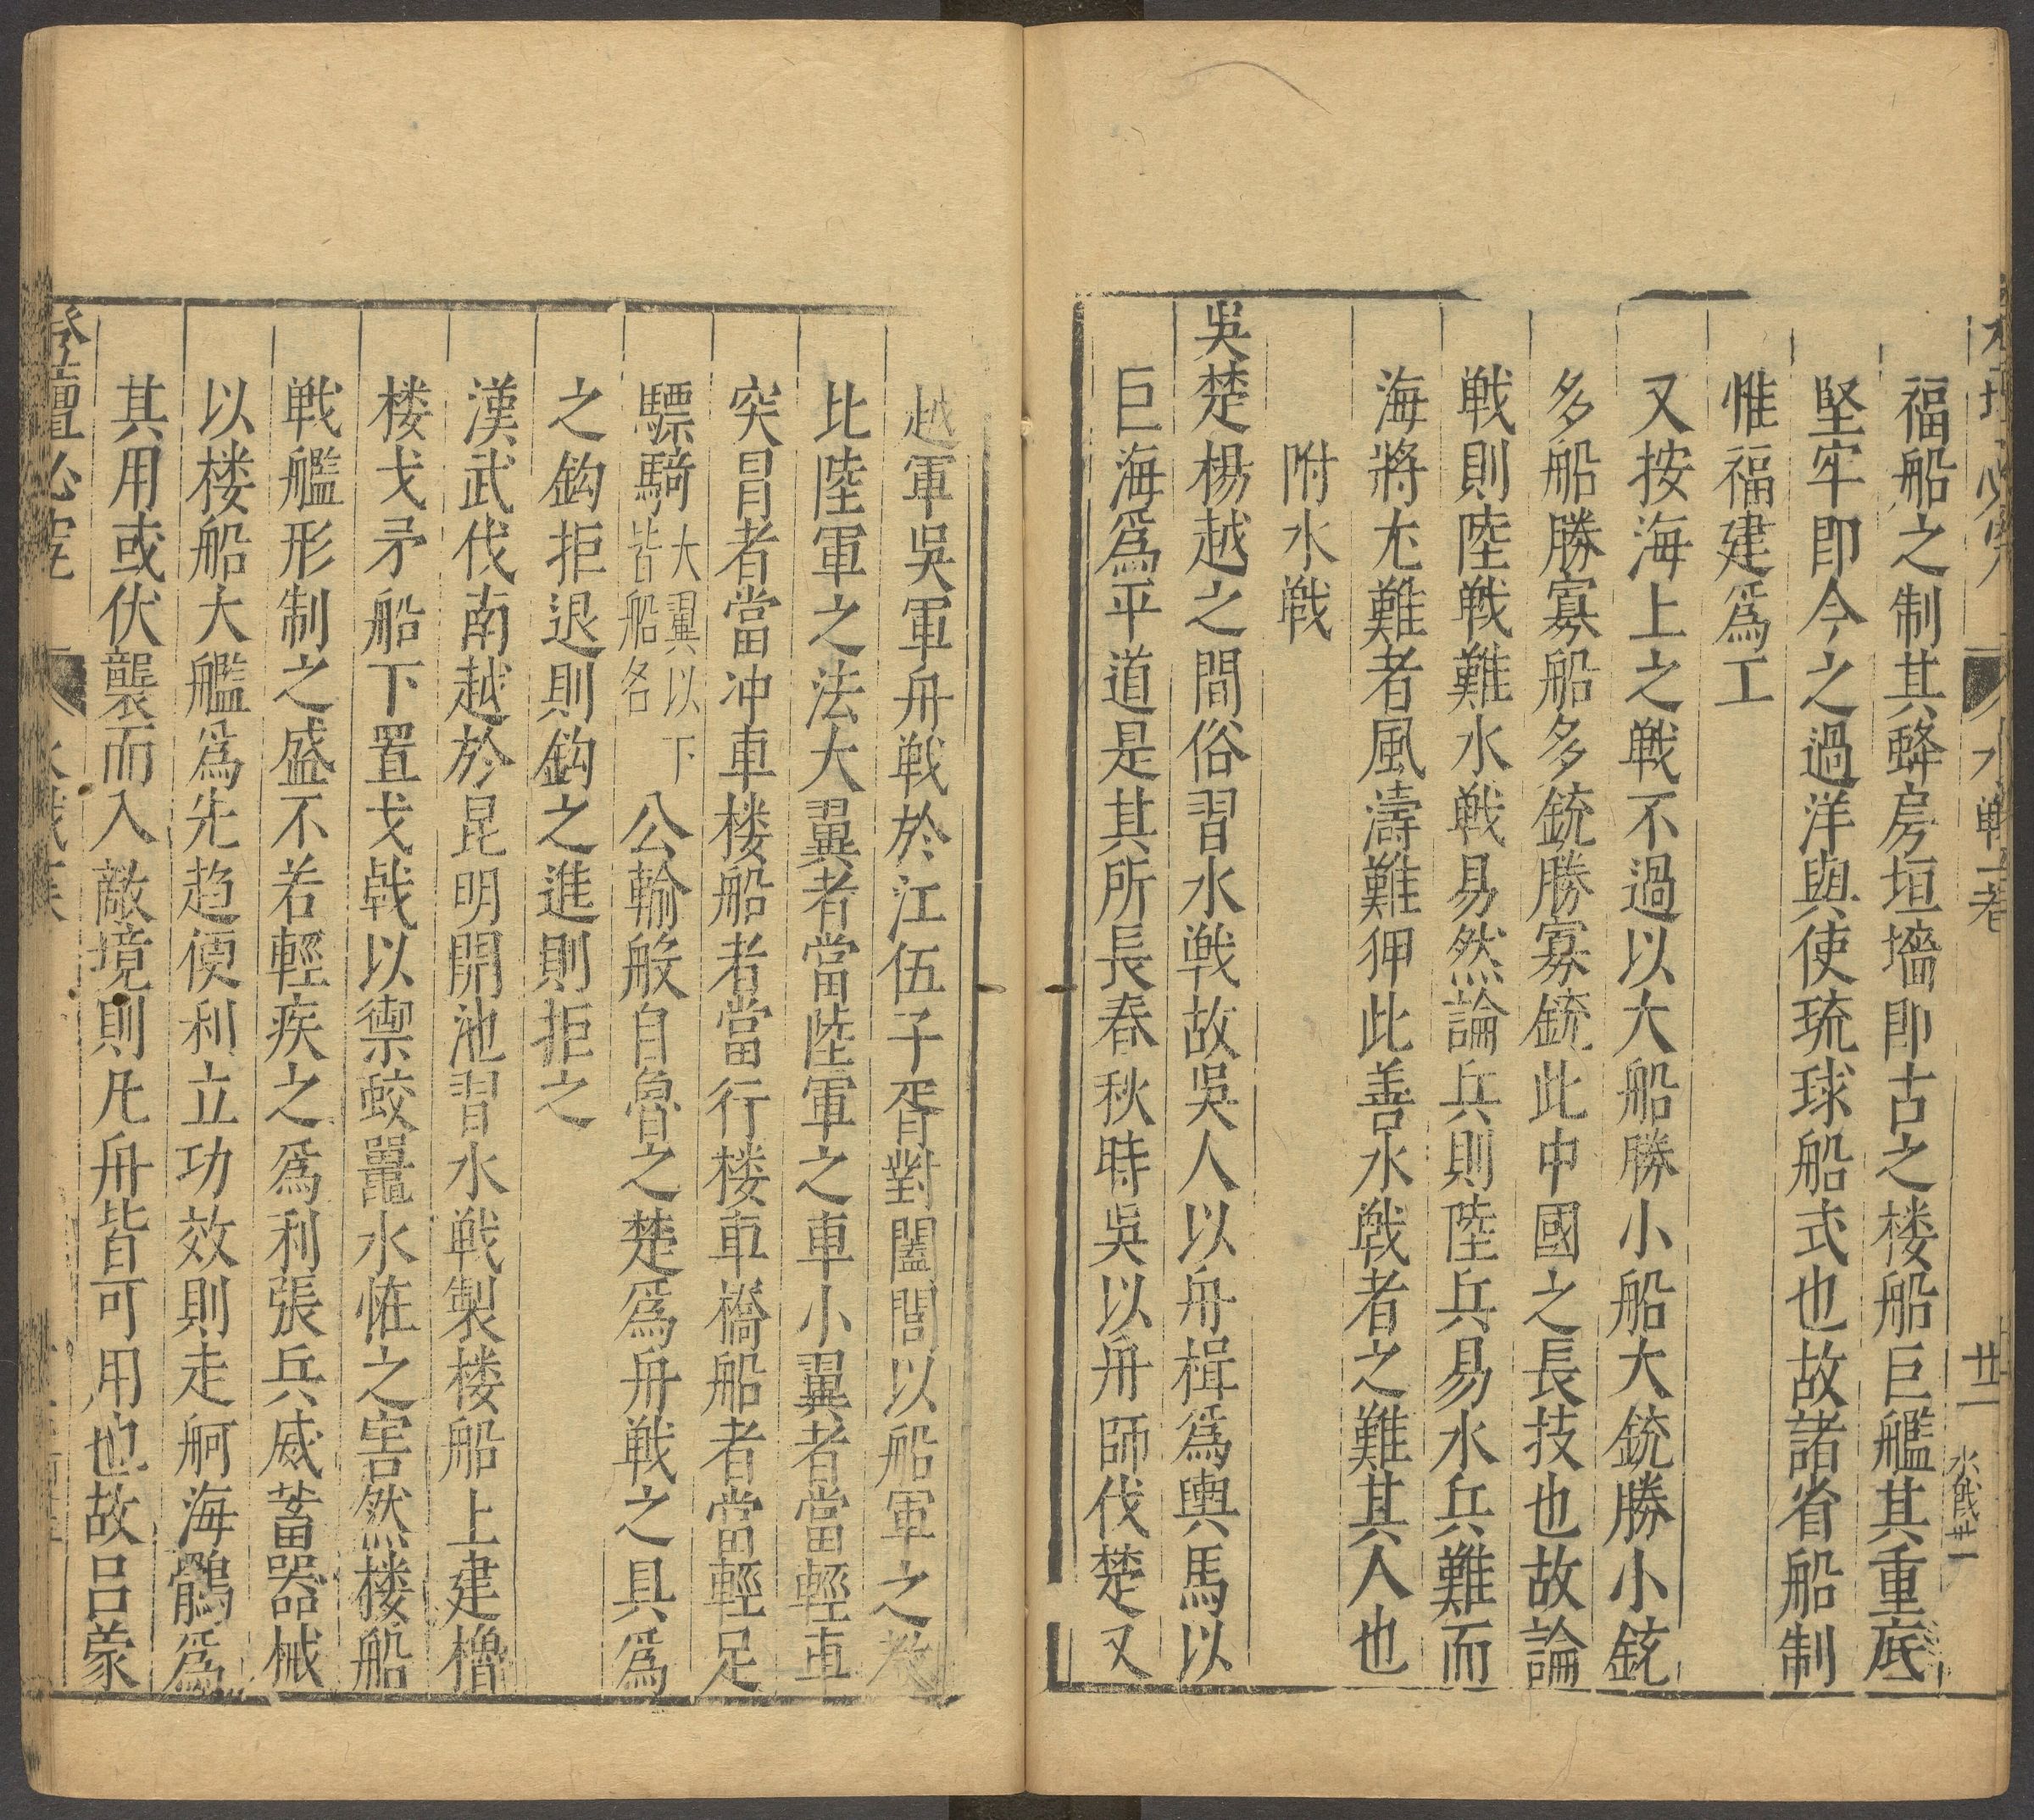 水戰一卷
卄一
水戰卄一
福船之制其蜂房垣墻即古之楼船巨艦其重底
堅牢即今之過洋與使琉球船式也故諸省船制
惟福建爲工
又按海上之戰不過以大船勝小船大銃勝小銃
多船勝寡船多銃勝寡銃此中國之長技也故論
戰則陸戰難水戰易然論兵則陸兵易水兵難而
海將尤難者風濤難狎此善水戰者之難其人也
附水戰
吳楚楊越之間俗習水戰故吳人以舟楫爲輿馬以
巨海爲平道是其所長春秋時吳以舟師伐楚又
越軍吳軍舟戰於江伍子胥對闔閭以船軍之教
比陸軍之法大翼者當陸軍之車小翼者當輕車
突冒者當冲車楼船者當行楼車橋船者當輕足
驃騎大翼以下皆船名 公輸般自魯之楚爲舟戰之具爲
之鈎拒退則鈎之進則拒之
漢武伐南越於昆明開池習水戰製楼船上建櫓
楼戈矛船下置戈戟以禦蛟鼉水怪之害然楼船
戰艦形制之盛不若輕疾之爲利張兵威蓄器械
以楼船大艦爲先趋便利立功效則走舸海鶻爲
其用或伏襲而入敵境則凡舟皆可用也故吕蒙
登壇必究